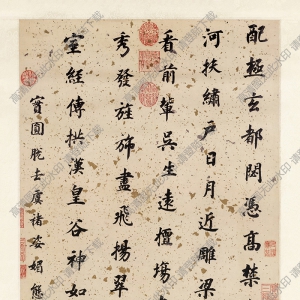 配極玄都閟憑高禁
河扶繡戶日月近雕梁
看前輩吳生遠擅場
秀發旌斾盡飛揚翠
室經傳拱漢皇谷神如
實圓脫去虞褚姿媚態